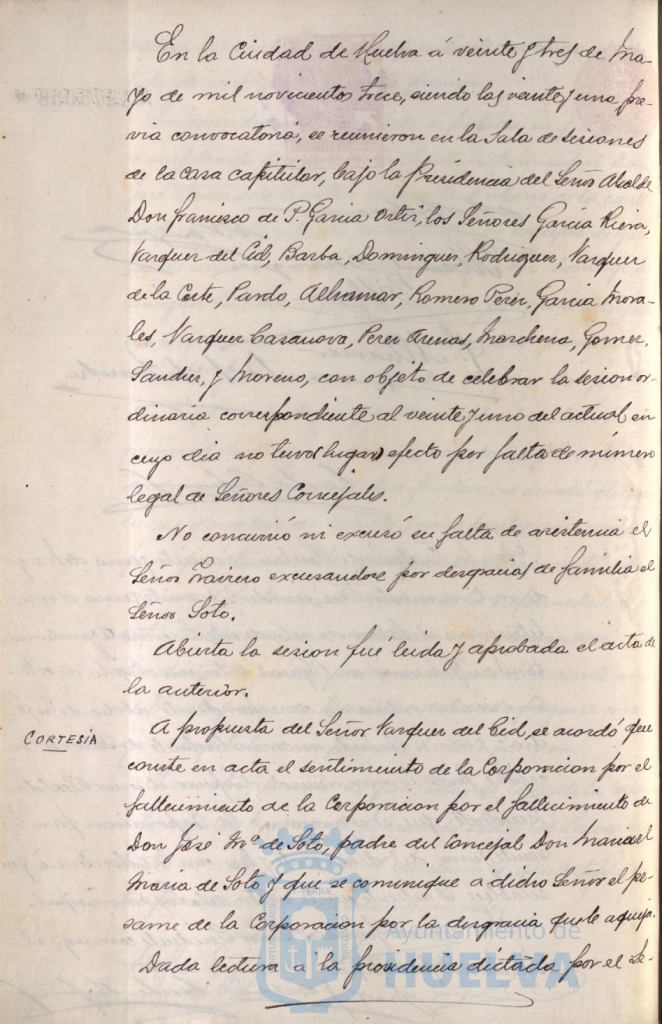 En la Ciudad de Huelva á veinte y tres de Ma-
yo de mil novecientos trece, siendo las veinte y una pre-
via convocatoria, se reunieron en la Sala de sesiones
de la casa capitular, bajo la Presidencia del Señor Alcalde
Don Francisco de P. Garcia Ortiz, los Señores Garcia Riera,
Vazquez del Cid, Barba, Dominguez, Rodriguez, Vazquez
de la Corte, Pardo, Alhamar, Romero Perez, Garcia Mora-
les, Vazquez Casanova, Perez Arenas, Marchena, Gomez,
Sanchez, y Moreno, con objeto de celebrar la sesion or-
dinaria correspondiente al veinte y uno del actual en
cuyo dia no tuvo (lugar) efecto por falta de número
legal de Señores Concejales.
No concurrió ni excusó su falta de asistencia el
Señor excusandose por desgracias de familia el
Señor Soto.
Abierta la sesion fué leida y aprobada el acta de
la anterior.
CORTESÍA
A propuesta del Señor Vazquez del Cid, se acordó que
conste en acta el sentimiento de la Corporacion por el
fallecimiento de la Corporacion por el fallecimiento de
Don José Mª de Soto, padre del Concejal Don Manuel
Maria de Soto y que se comunique á dicho Señor el pe-
same de la Corporacion por la desgracia que le aqueja.
Dada lectura á la providencia dictada por el Se-
Ayuntamiento de
HUELVA